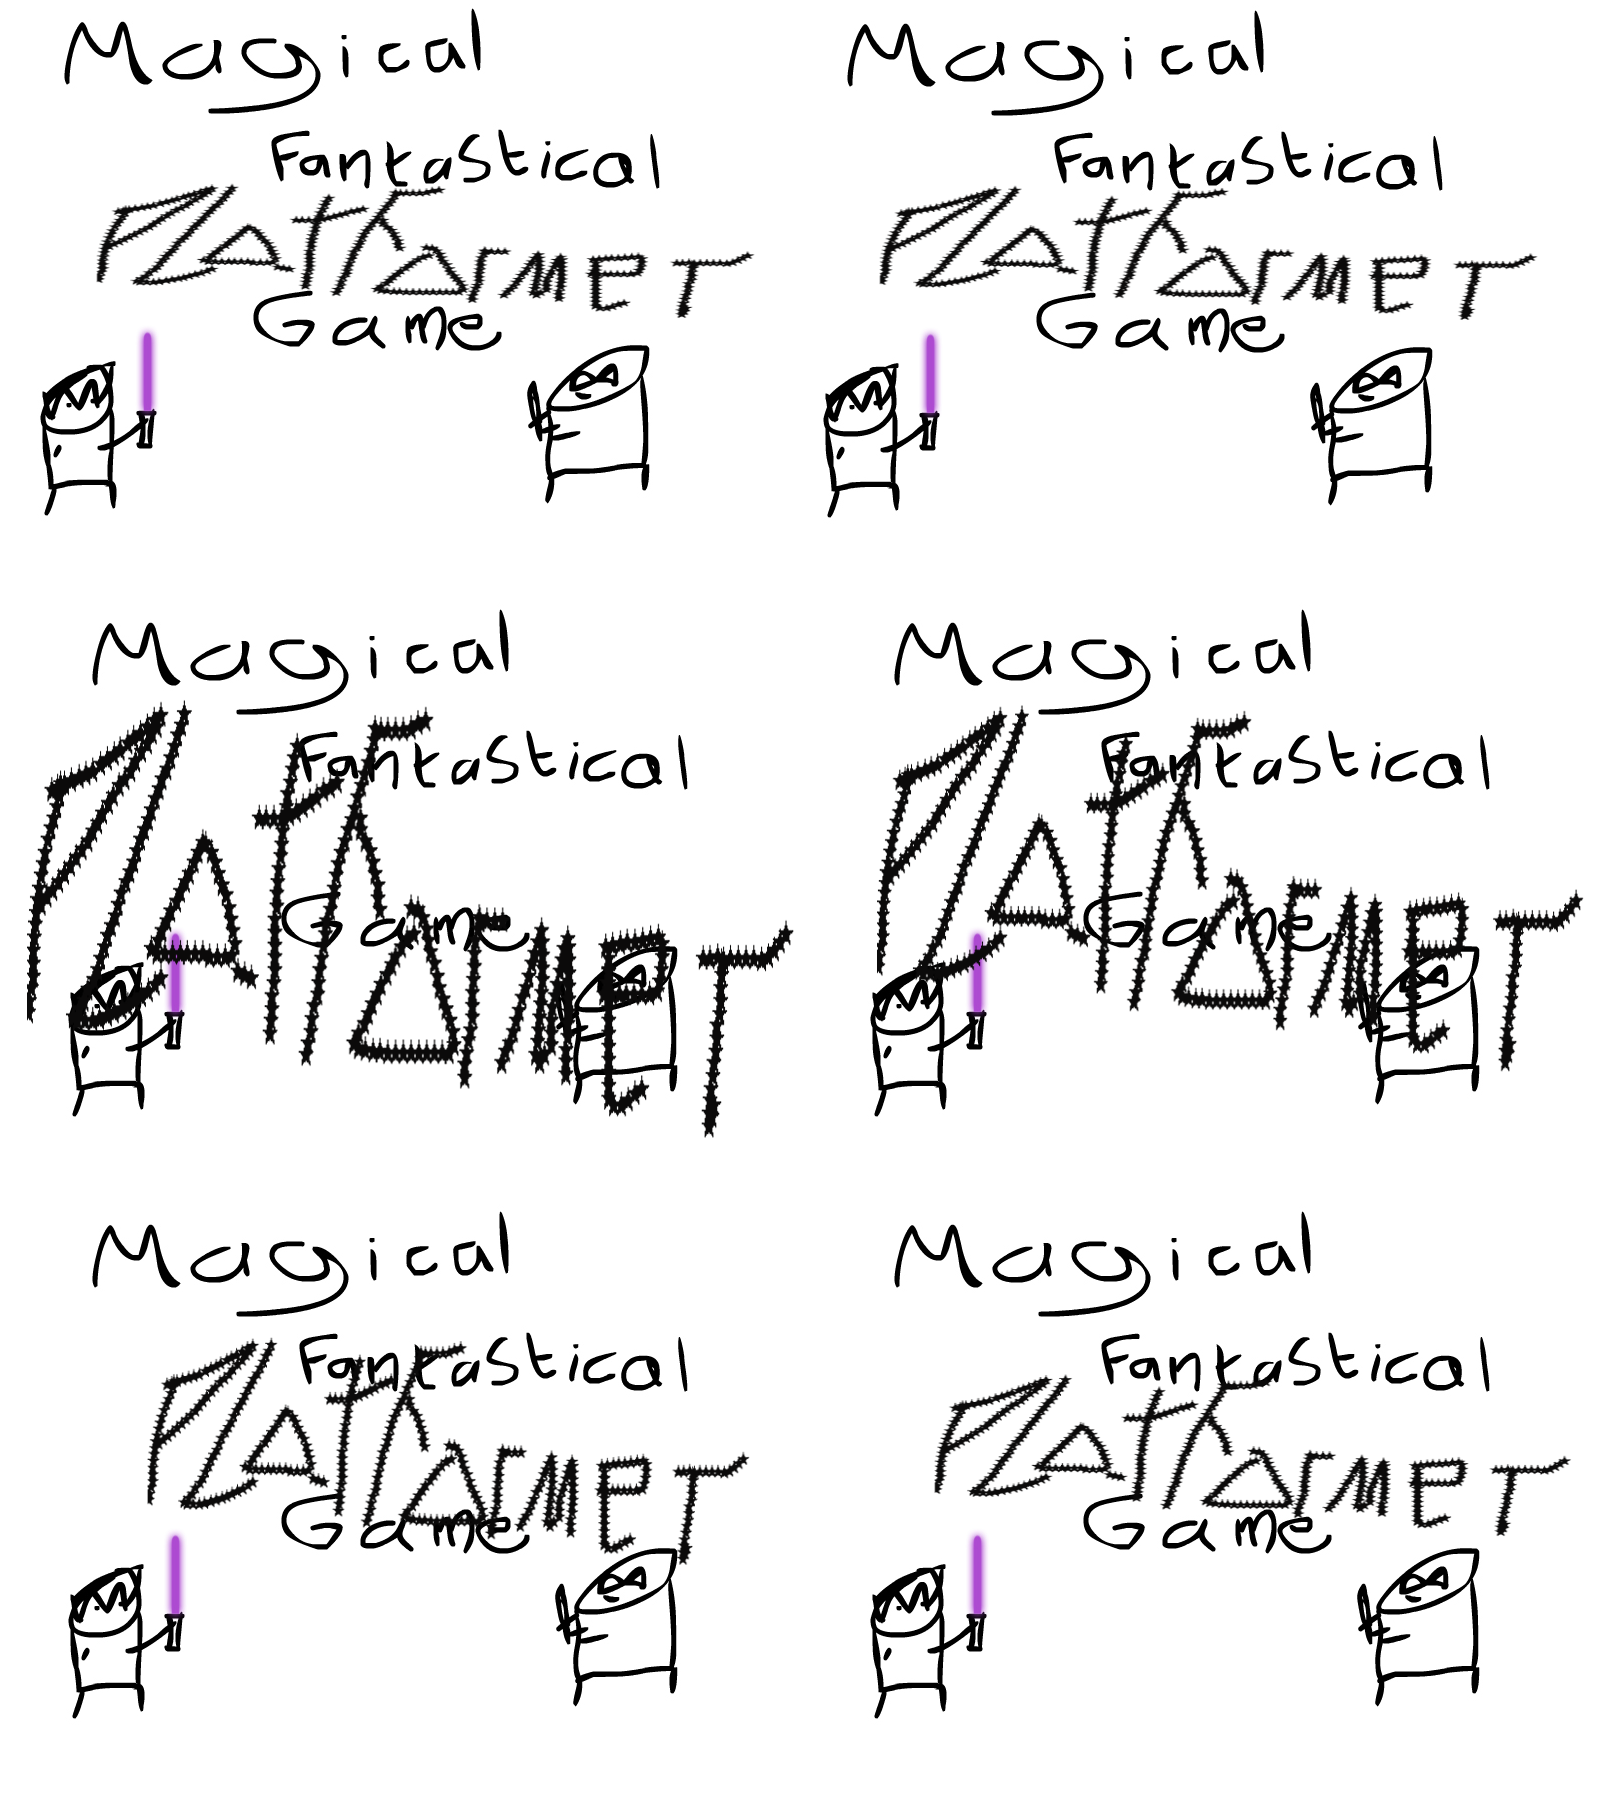 Magical
Fantastical
PLatformer
Game
Magical
Fantastical
PLatformer
Game
Magical
Fantastical
PLatformer
Game
Magical
Fantastical
PLatformer
Game
Magical
Fantastical
PLatformer
Game
Magical
Fantastical
PLatformer
Game